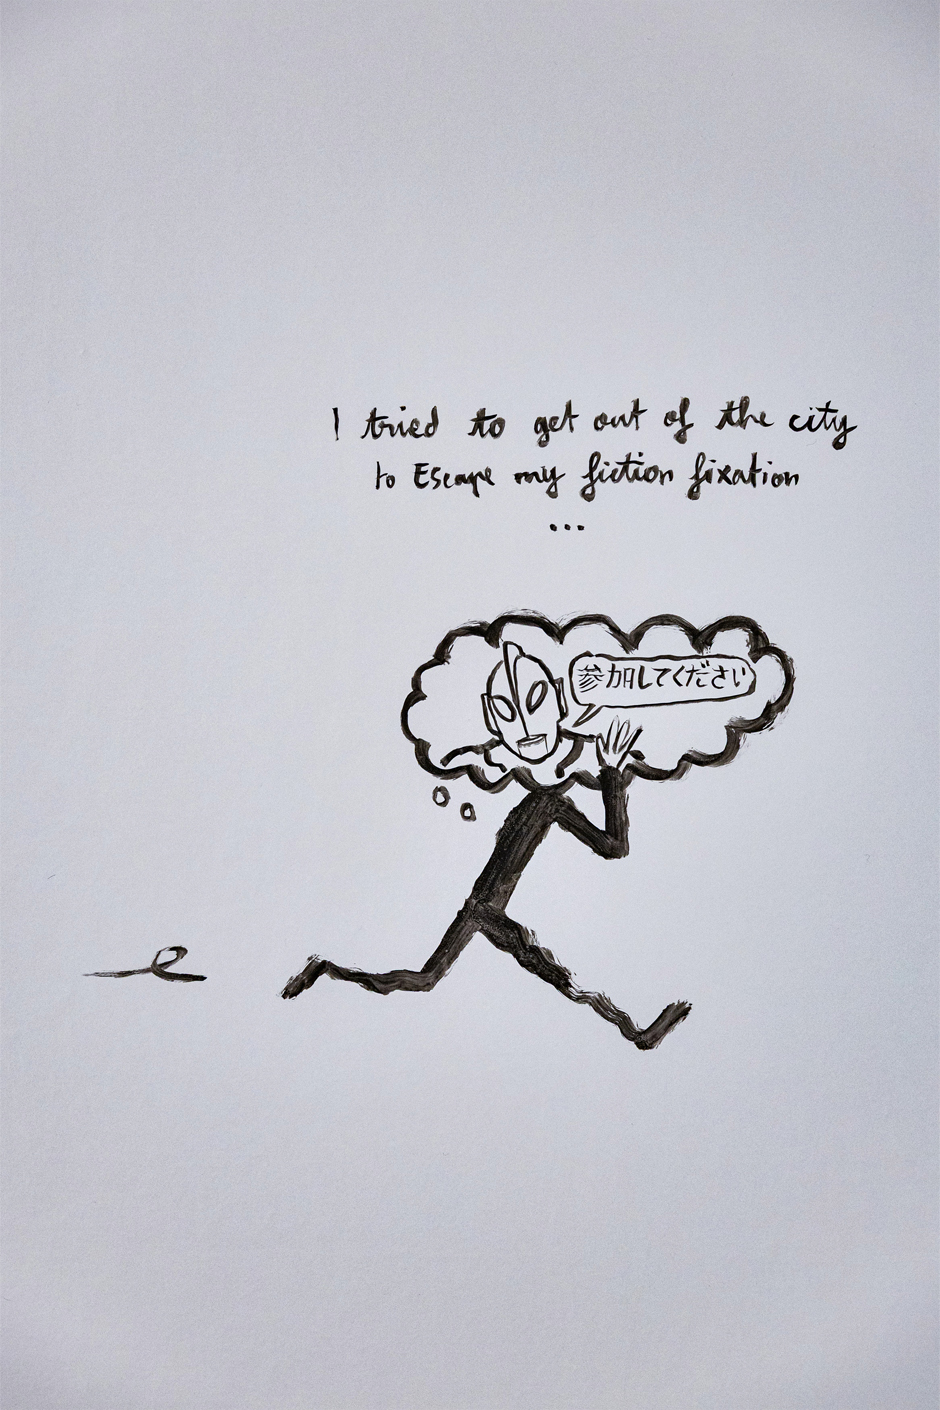 I tried to get out of the city
to Escape my fiction fixation
...
参加してください